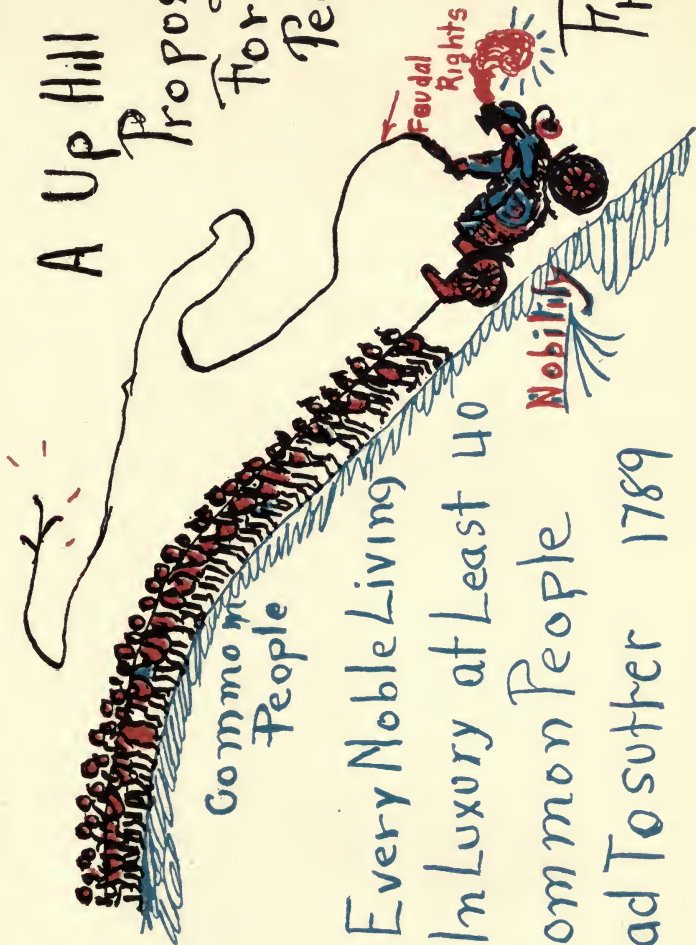 A Up Hill
Propos
For
Pe
Feudal
Rights
Nobility
Common
People
Every Noble Living
In Luxury at Least 40
ommon People
ad To suffer 1789